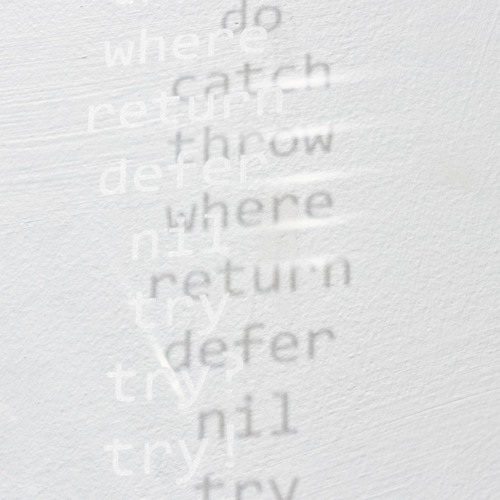 where
return
defer
nil
try
try?
try!
do
catch
throw
where
return
defer
nil
try